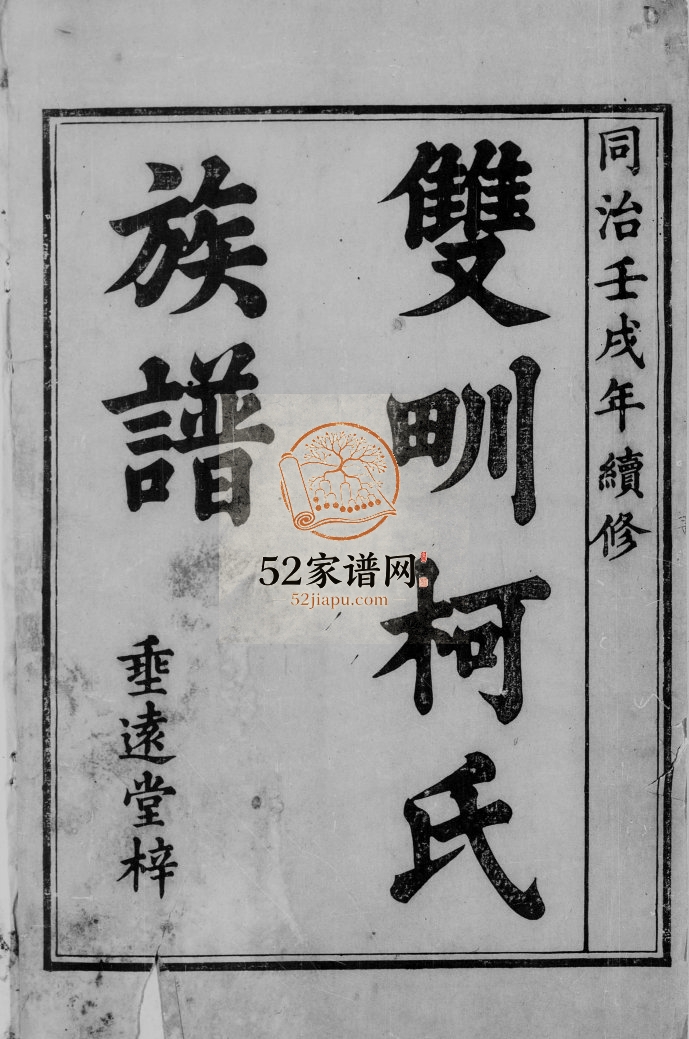 同治壬戌年續修
雙甽柯氏
族譜
垂遠堂梓
52家谱网
52jiapu.com